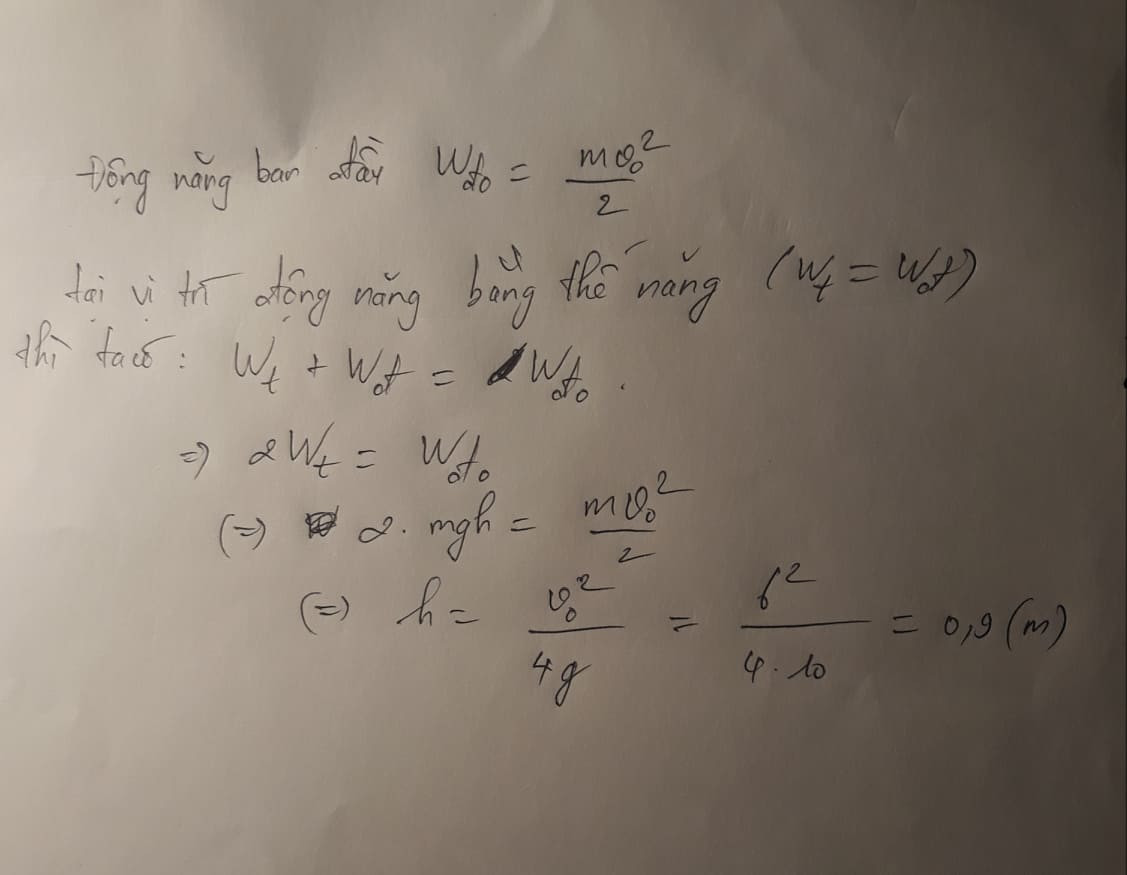 Động năng ban đầu Wđ₀ = mv₀²/2
tại vị trí động năng bằng thế năng (Wt = Wđ)
thì ta có: Wt + Wđ = Wđ₀.
=> 2Wt = Wđ₀
(=) 2. mgh = mv₀²/2
(=) h = v₀²/4g = 6²/4.10 = 0,9 (m)